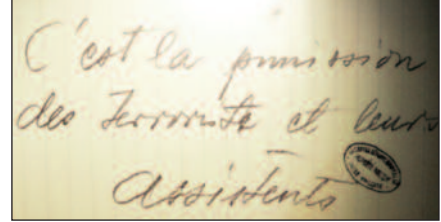 C'est la punission
des Terroriste et leurs
Assistents